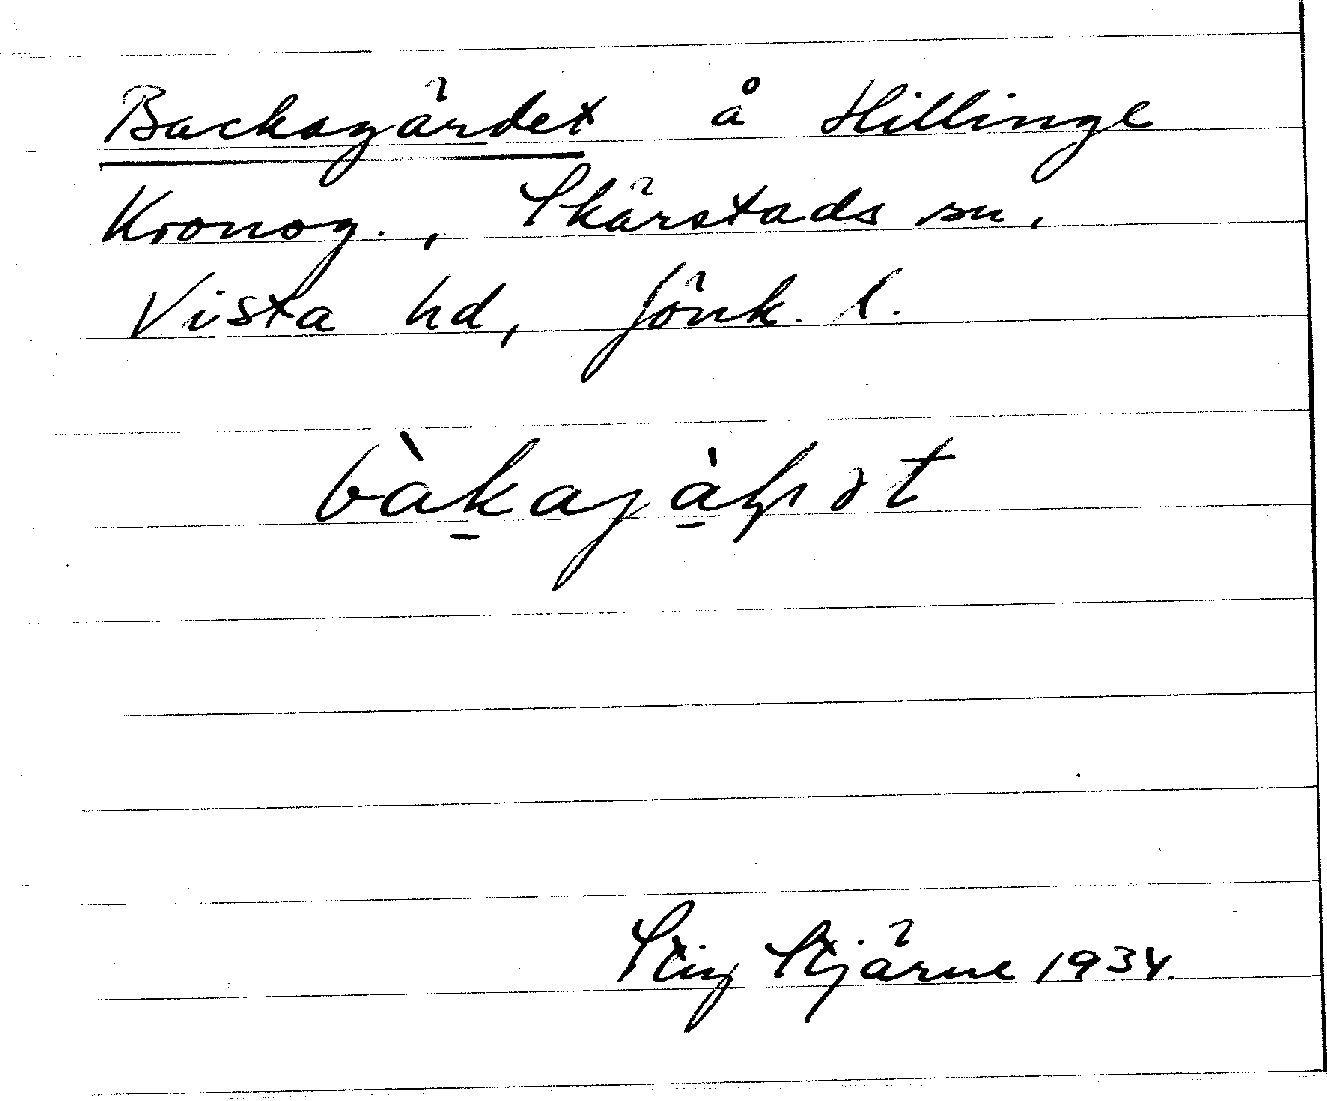 Backagärdet å Hillinge
Kronog., Skärstads sn,
Vista hd, Jönk. l.
Stig Stjärne 1934.